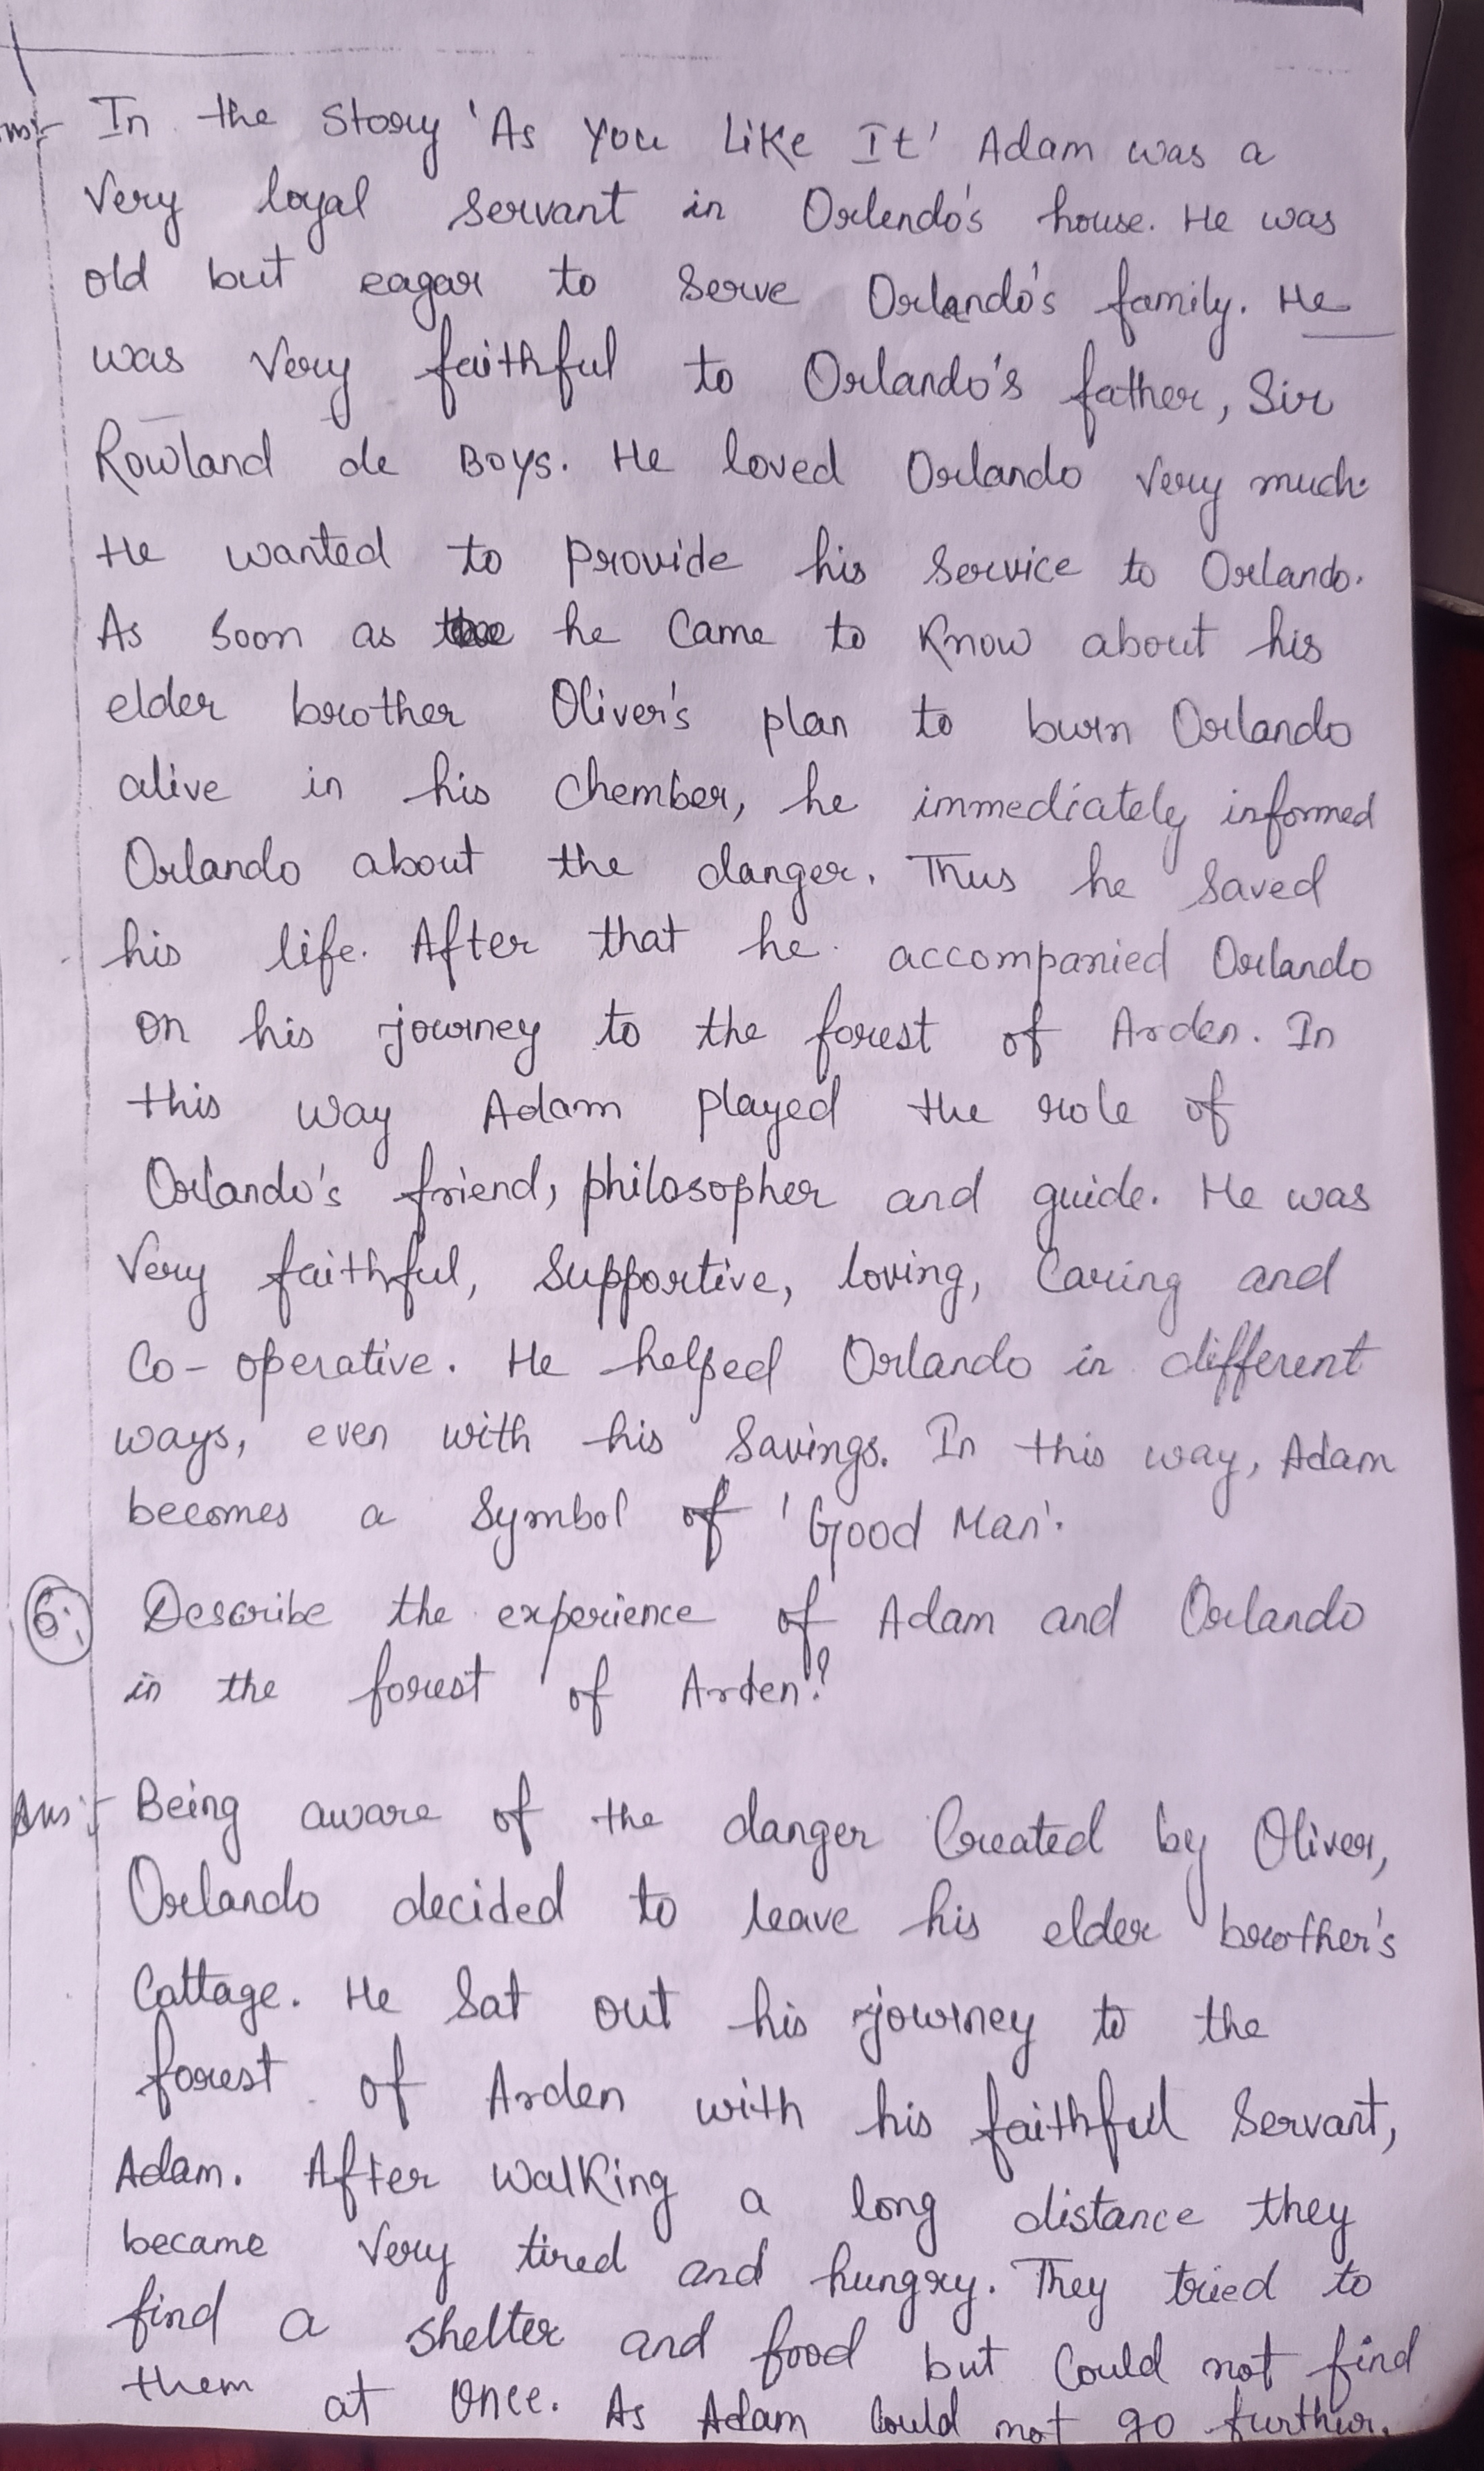 Ans:- In the Story 'As You Like It' Adam was a
Very loyal Servant in Orlendo's house. He was
old but eagar to Serve Orlando's family. He
was Very faithful to Orlando's father, Sir
Rowland de Boys. He loved Orlando Very much.
He wanted to Provide his Service to Orlando.
As Soon as he Came to Know about his
elder brother Oliver's plan to burn Orlando
alive in his Chember, he immediately informed
Orlando about the danger. Thus he Saved
his life. After that he accompanied Orlando
on his journey to the forest of Arden. In
this way Adam played the role of
Orlando's friend, philosopher and guide. He was
Very faithful, Supportive, loving, Caring and
Co-operative. He helped Orlando in different
ways, even with his Savings. In this way, Adam
becomes a Symbol of 'Good Man'.
6: Describe the experience of Adam and Orlando
in the forest of Arden?
Ans:- Being aware of the danger Created by Oliver,
Orlando decided to leave his elder brother's
Cottage. He Sat out his journey to the
forest of Arden with his faithful Servant,
Adam. After Walking a long distance they
became Very tired and hungry. They tried to
find a shelter and food but Could not find
them at Once. As Adam Could not go further.